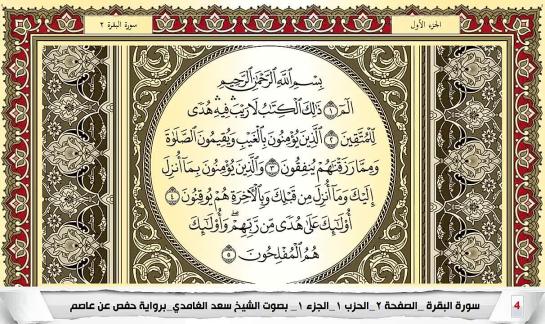 الجزء الأول
سورة البقرة ٢
بِسْمِ اللَّهِ الرَّحْمَٰنِ الرَّحِيمِ
الٓمٓ ١ ذَٰلِكَ الْكِتَٰبُ لَا رَيْبَ ۛ فِيهِ ۛ هُدًى
لِّلْمُتَّقِينَ ٢ الَّذِينَ يُؤْمِنُونَ بِالْغَيْبِ وَيُقِيمُونَ الصَّلَوٰةَ
وَمِمَّا رَزَقْنَٰهُمْ يُنفِقُونَ ٣ وَالَّذِينَ يُؤْمِنُونَ بِمَآ أُنزِلَ
إِلَيْكَ وَمَآ أُنزِلَ مِن قَبْلِكَ وَبِالْءَاخِرَةِ هُمْ يُوقِنُونَ ٤
أُو۟لَٰٓئِكَ عَلَىٰ هُدًى مِّن رَّبِّهِمْ ۖ وَأُو۟لَٰٓئِكَ
هُمُ الْمُفْلِحُونَ ٥
4 سورة البقرة _الصفحة ٢_الحزب ١_الجزء ١_ بصوت الشيخ سعد الغامدي_برواية حفص عن عاصم